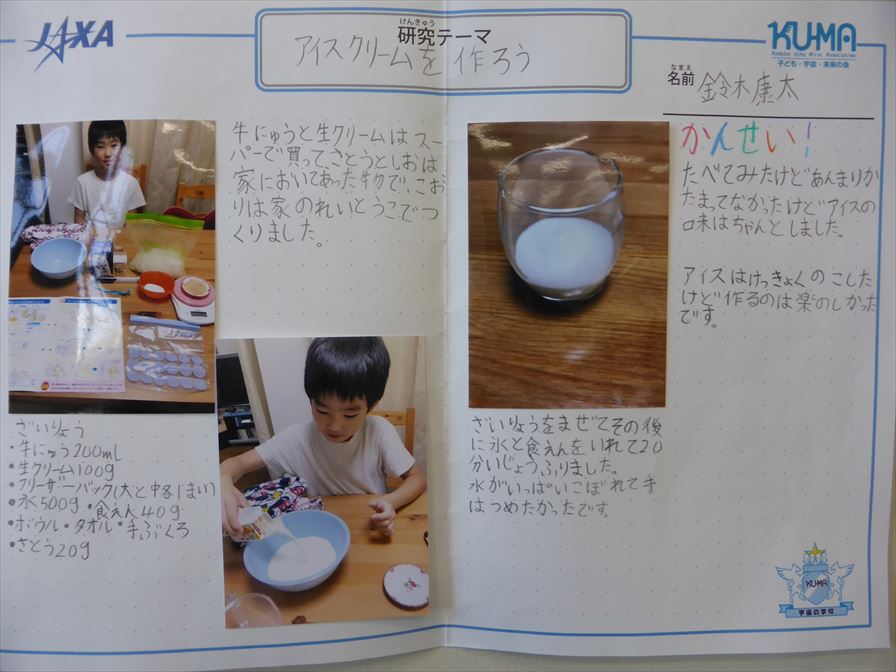 JAXA
けんきゅう
研究テーマ
アイスクリームを作ろう
KUMA
Kodomo Uchu Mirai Association
子ども・宇宙・未来の会
なまえ
名前
鈴木康太
牛にゅうと生クリームはスー
パーで買って、さとうとしおは
家においてあった物で、こお
りは家のれいとうこでつ
くりました。
ざいりょう
・牛にゅう200mL
・生クリーム100g
・フリーザーバック(大と中各1まい)
・氷500g・食えん40g
・ボウル・タオル・手ぶくろ
・さとう20g
ざいりょうをまぜてその後
に氷と食えんをいれて20
分いじょうふりました。
水がいっぱいこぼれて手
はつめたかったです。
かんせい!
たべてみたけどあんまりか
たまってなかったけどアイスの
味はちゃんとしました。
アイスはけっきょくのこした
けど作るのは楽のしかった
です。
KUMA
宇宙の学校